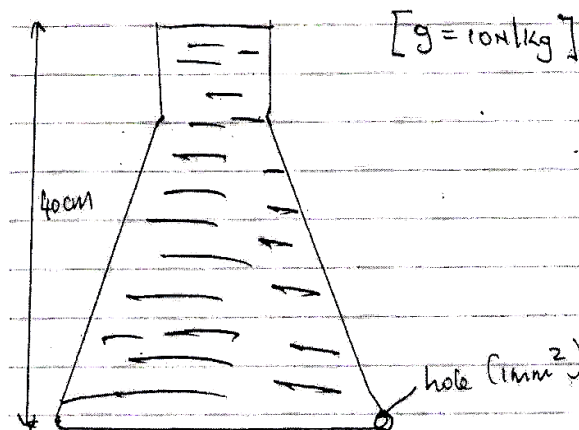 [g = 10N/kg]
40cm
hole (1mm²)